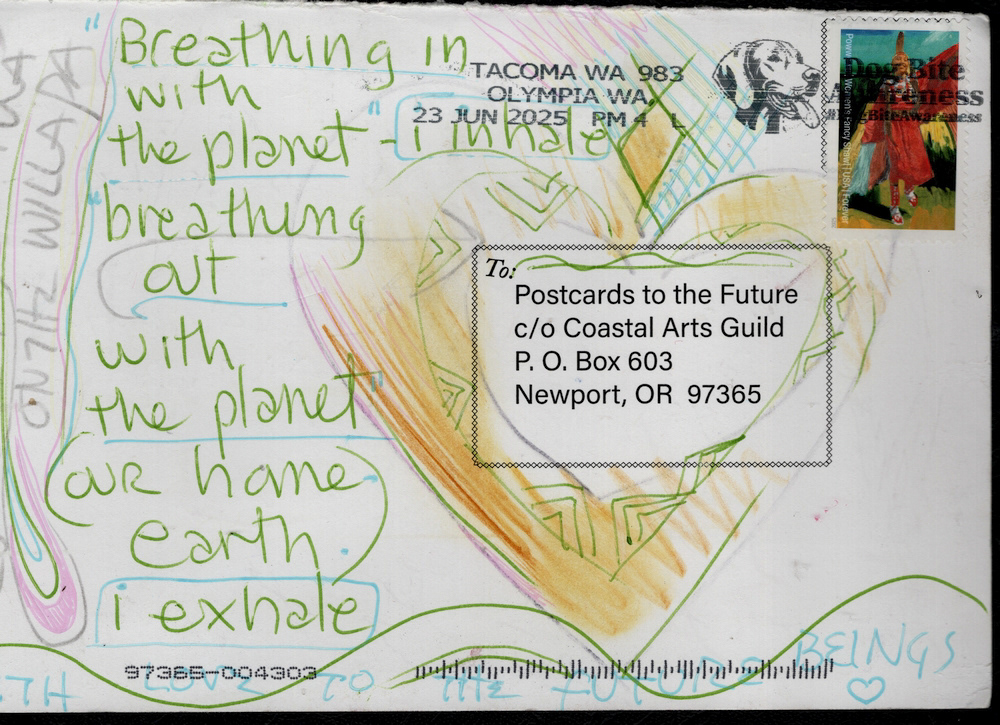 "Breathing in
with
the planet" - i inhale
"breathing
out
with
the planet"
(our home
earth.)
i exhale
TACOMA WA 983
OLYMPIA WA
23 JUN 2025 PM 4 L
Dog Bite
Awareness
#DogBiteAwareness
Women's Fancy Shawl | USA | Forever
To:
Postcards to the Future
c/o Coastal Arts Guild
P. O. Box 603
Newport, OR 97365
97365-004303
LOVE TO THE FUTURE BEINGS
WILLAPA